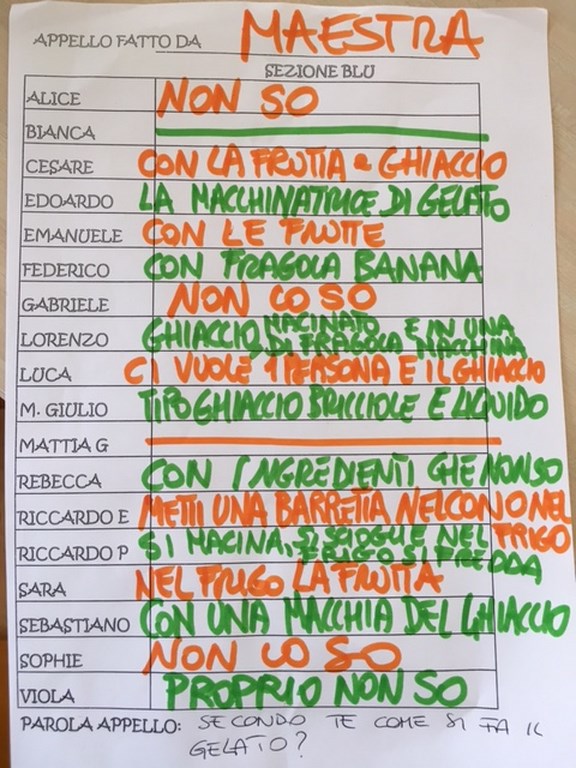 APPELLO FATTO DA MAESTRA
SEZIONE BLU
ALICE NON SO
BIANCA
CESARE CON LA FRUTTA e GHIACCIO
EDOARDO LA MACCHINATRICE DI GELATO
EMANUELE CON LE FRUTTE
FEDERICO CON FRAGOLA BANANA
GABRIELE NON LO SO
LORENZO GHIACCIO MACINATO E IN UNA
DI FRAGOLA MACCHINA
LUCA CI VUOLE 1 PERSONA E IL GHIACCIO
M. GIULIO TIPO GHIACCIO BRICCIOLE E LIQUIDO
MATTIA G
REBECCA CON INGREDIENTI CHE NON SO
RICCARDO E METTI UNA BARRETTA NEL CONO NEL
FRIGO
RICCARDO P SI MACINA, SI SCIOGLIE NEL
FRIGO SI FREDDA
SARA NEL FRIGO LA FRUTTA
SEBASTIANO CON UNA MACCHIA DEL GHIACCIO
SOPHIE NON LO SO
VIOLA PROPRIO NON SO
PAROLA APPELLO: SECONDO TE COME SI FA IL
GELATO?